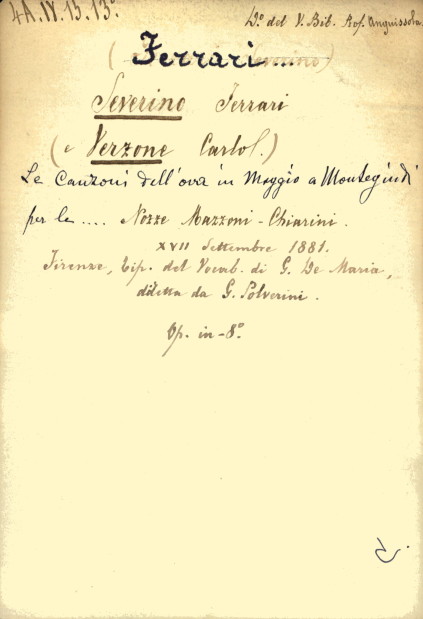 4A.IV.13.13°
D.° del V. Bib. Prof. Anguissola.
Ferrari....
( Severino)
Severino Ferrari
(e Verzone Carlo.)
Le Canzoni dell'ova in Maggio a Montegiudi
per le .... Nozze Mazzoni - Chiarini.
XVII Settembre 1881.
Firenze, Tip. del Vocab. di G. De Maria,
diletta da G. Polverini.
Op. in-8°